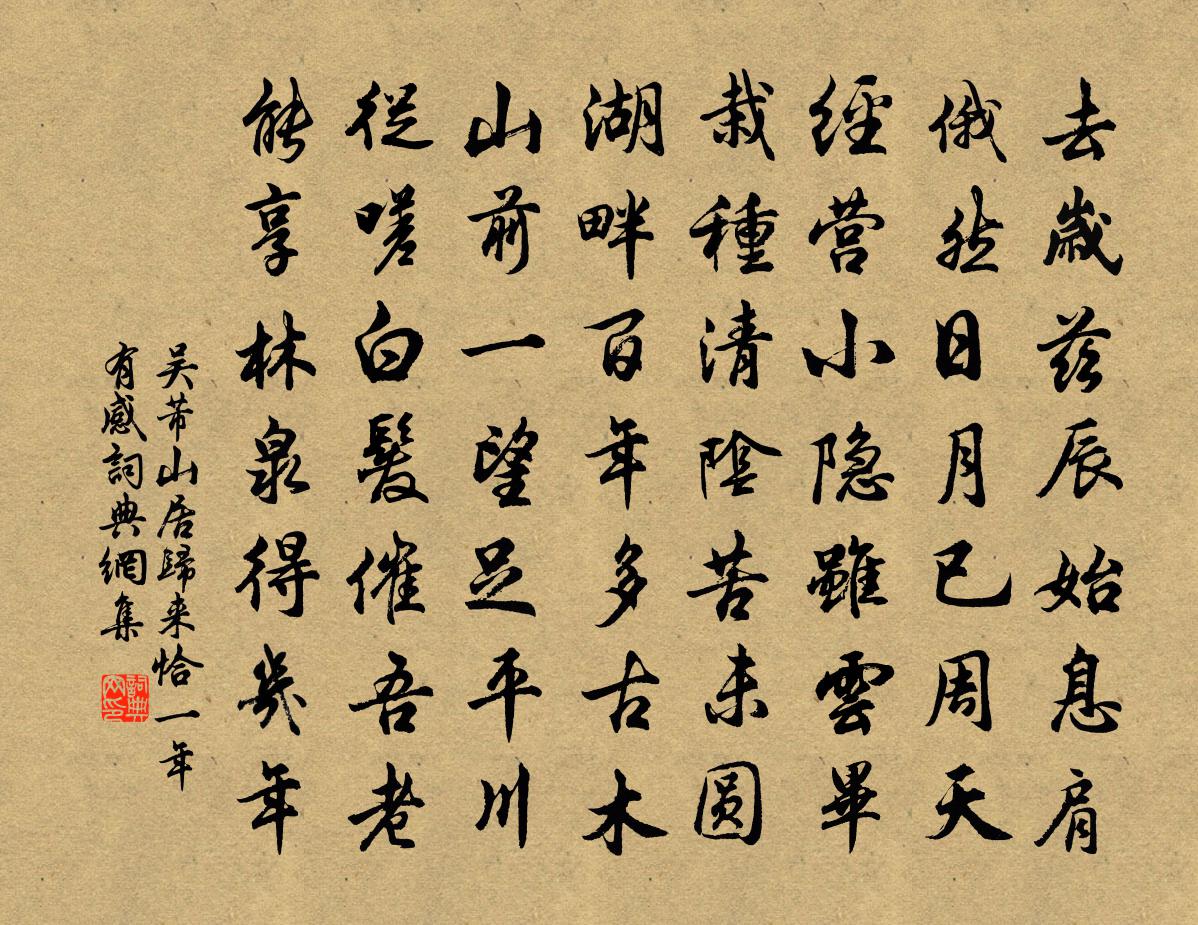 去歲茲辰始息肩
俄然日月已周天
經營小隱雖雲畢
栽種清陰苦未圓
湖畔百年多古木
山前一望足平川
從嗟白髮催吾老
能享林泉得幾年
吴芾山居歸来恰一年
有感詞典網集
詞典網印